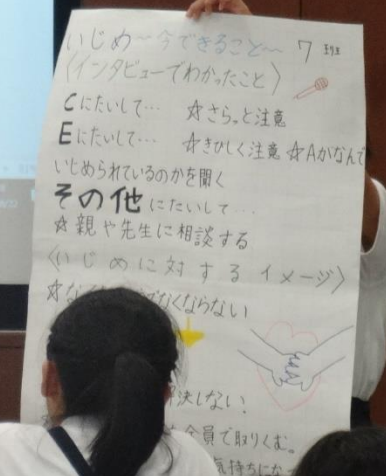 いじめ〜今できること〜 7班
〈インタビューでわかったこと〉
Cにたいして… ☆さらっと注意
Eにたいして… ☆きびしく注意 ☆Aがなんで
いじめられているのかを聞く
その他にたいして…
☆親や先生に相談する
〈いじめに対するイメージ〉
☆な なくならない
決しない!
全員で取りくむ。
気持ちにな